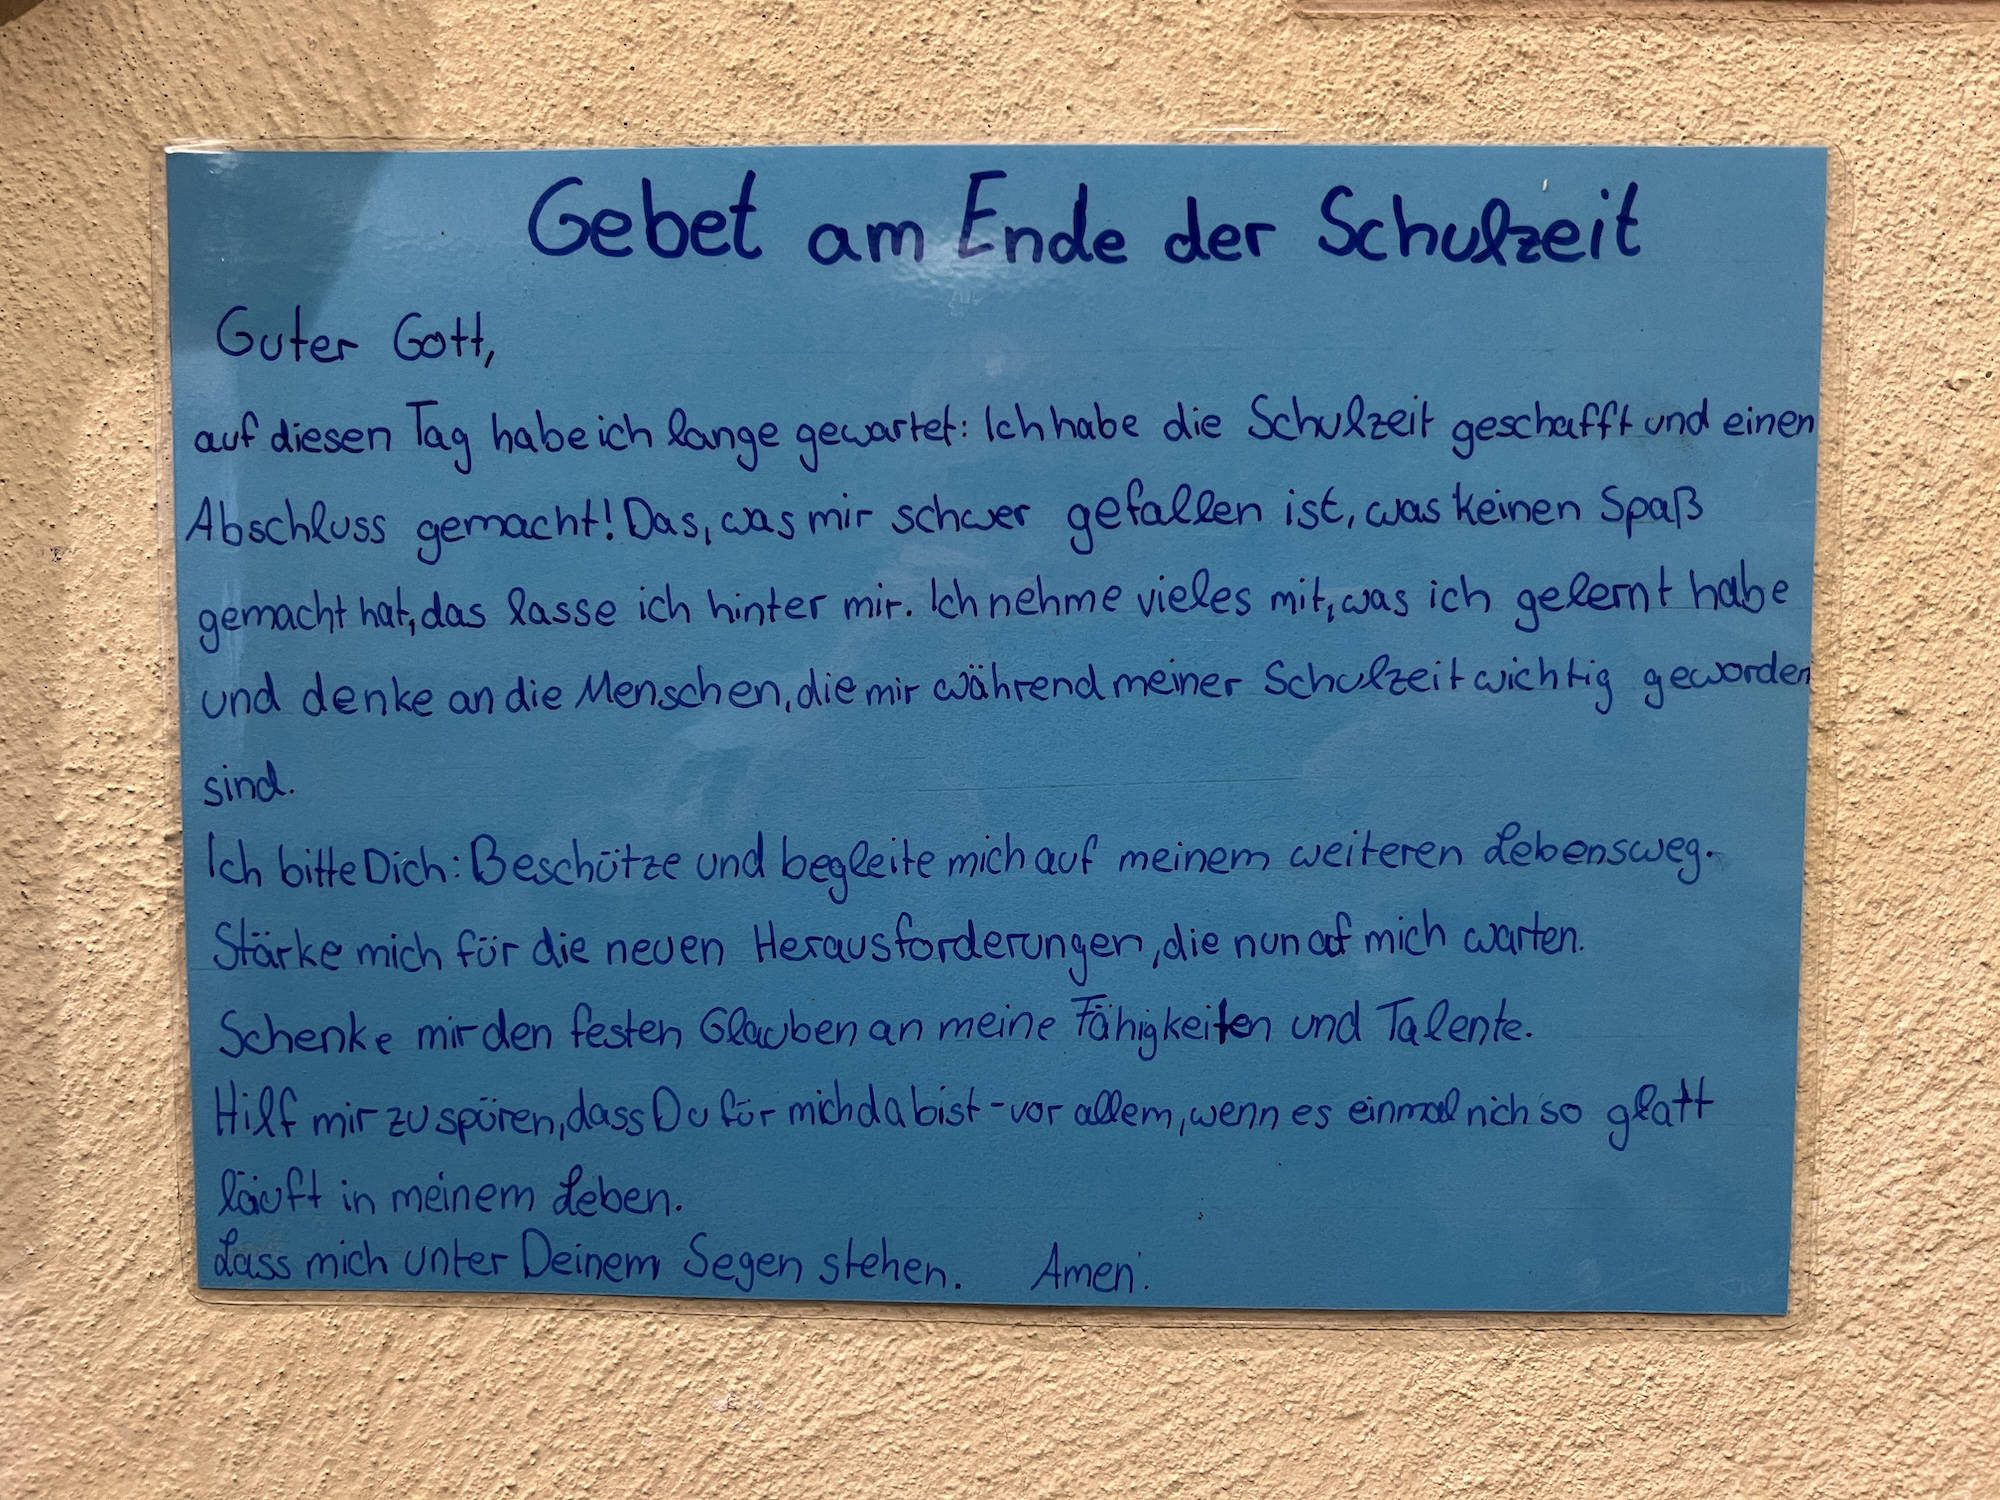 Gebet am Ende der Schulzeit
Guter Gott,
auf diesen Tag habe ich lange gewartet: Ich habe die Schulzeit geschafft und einen
Abschluss gemacht! Das, was mir schwer gefallen ist, was keinen Spaß
gemacht hat, das lasse ich hinter mir. Ich nehme vieles mit, was ich gelernt habe
und denke an die Menschen, die mir während meiner Schulzeit wichtig geworden
sind.
Ich bitte Dich: Beschütze und begleite mich auf meinem weiteren Lebensweg.
Stärke mich für die neuen Herausforderungen, die nun auf mich warten.
Schenke mir den festen Glauben an meine Fähigkeiten und Talente.
Hilf mir zu spüren, dass Du für mich da bist - vor allem, wenn es einmal nich so glatt
läuft in meinem Leben.
Lass mich unter Deinem Segen stehen. Amen.